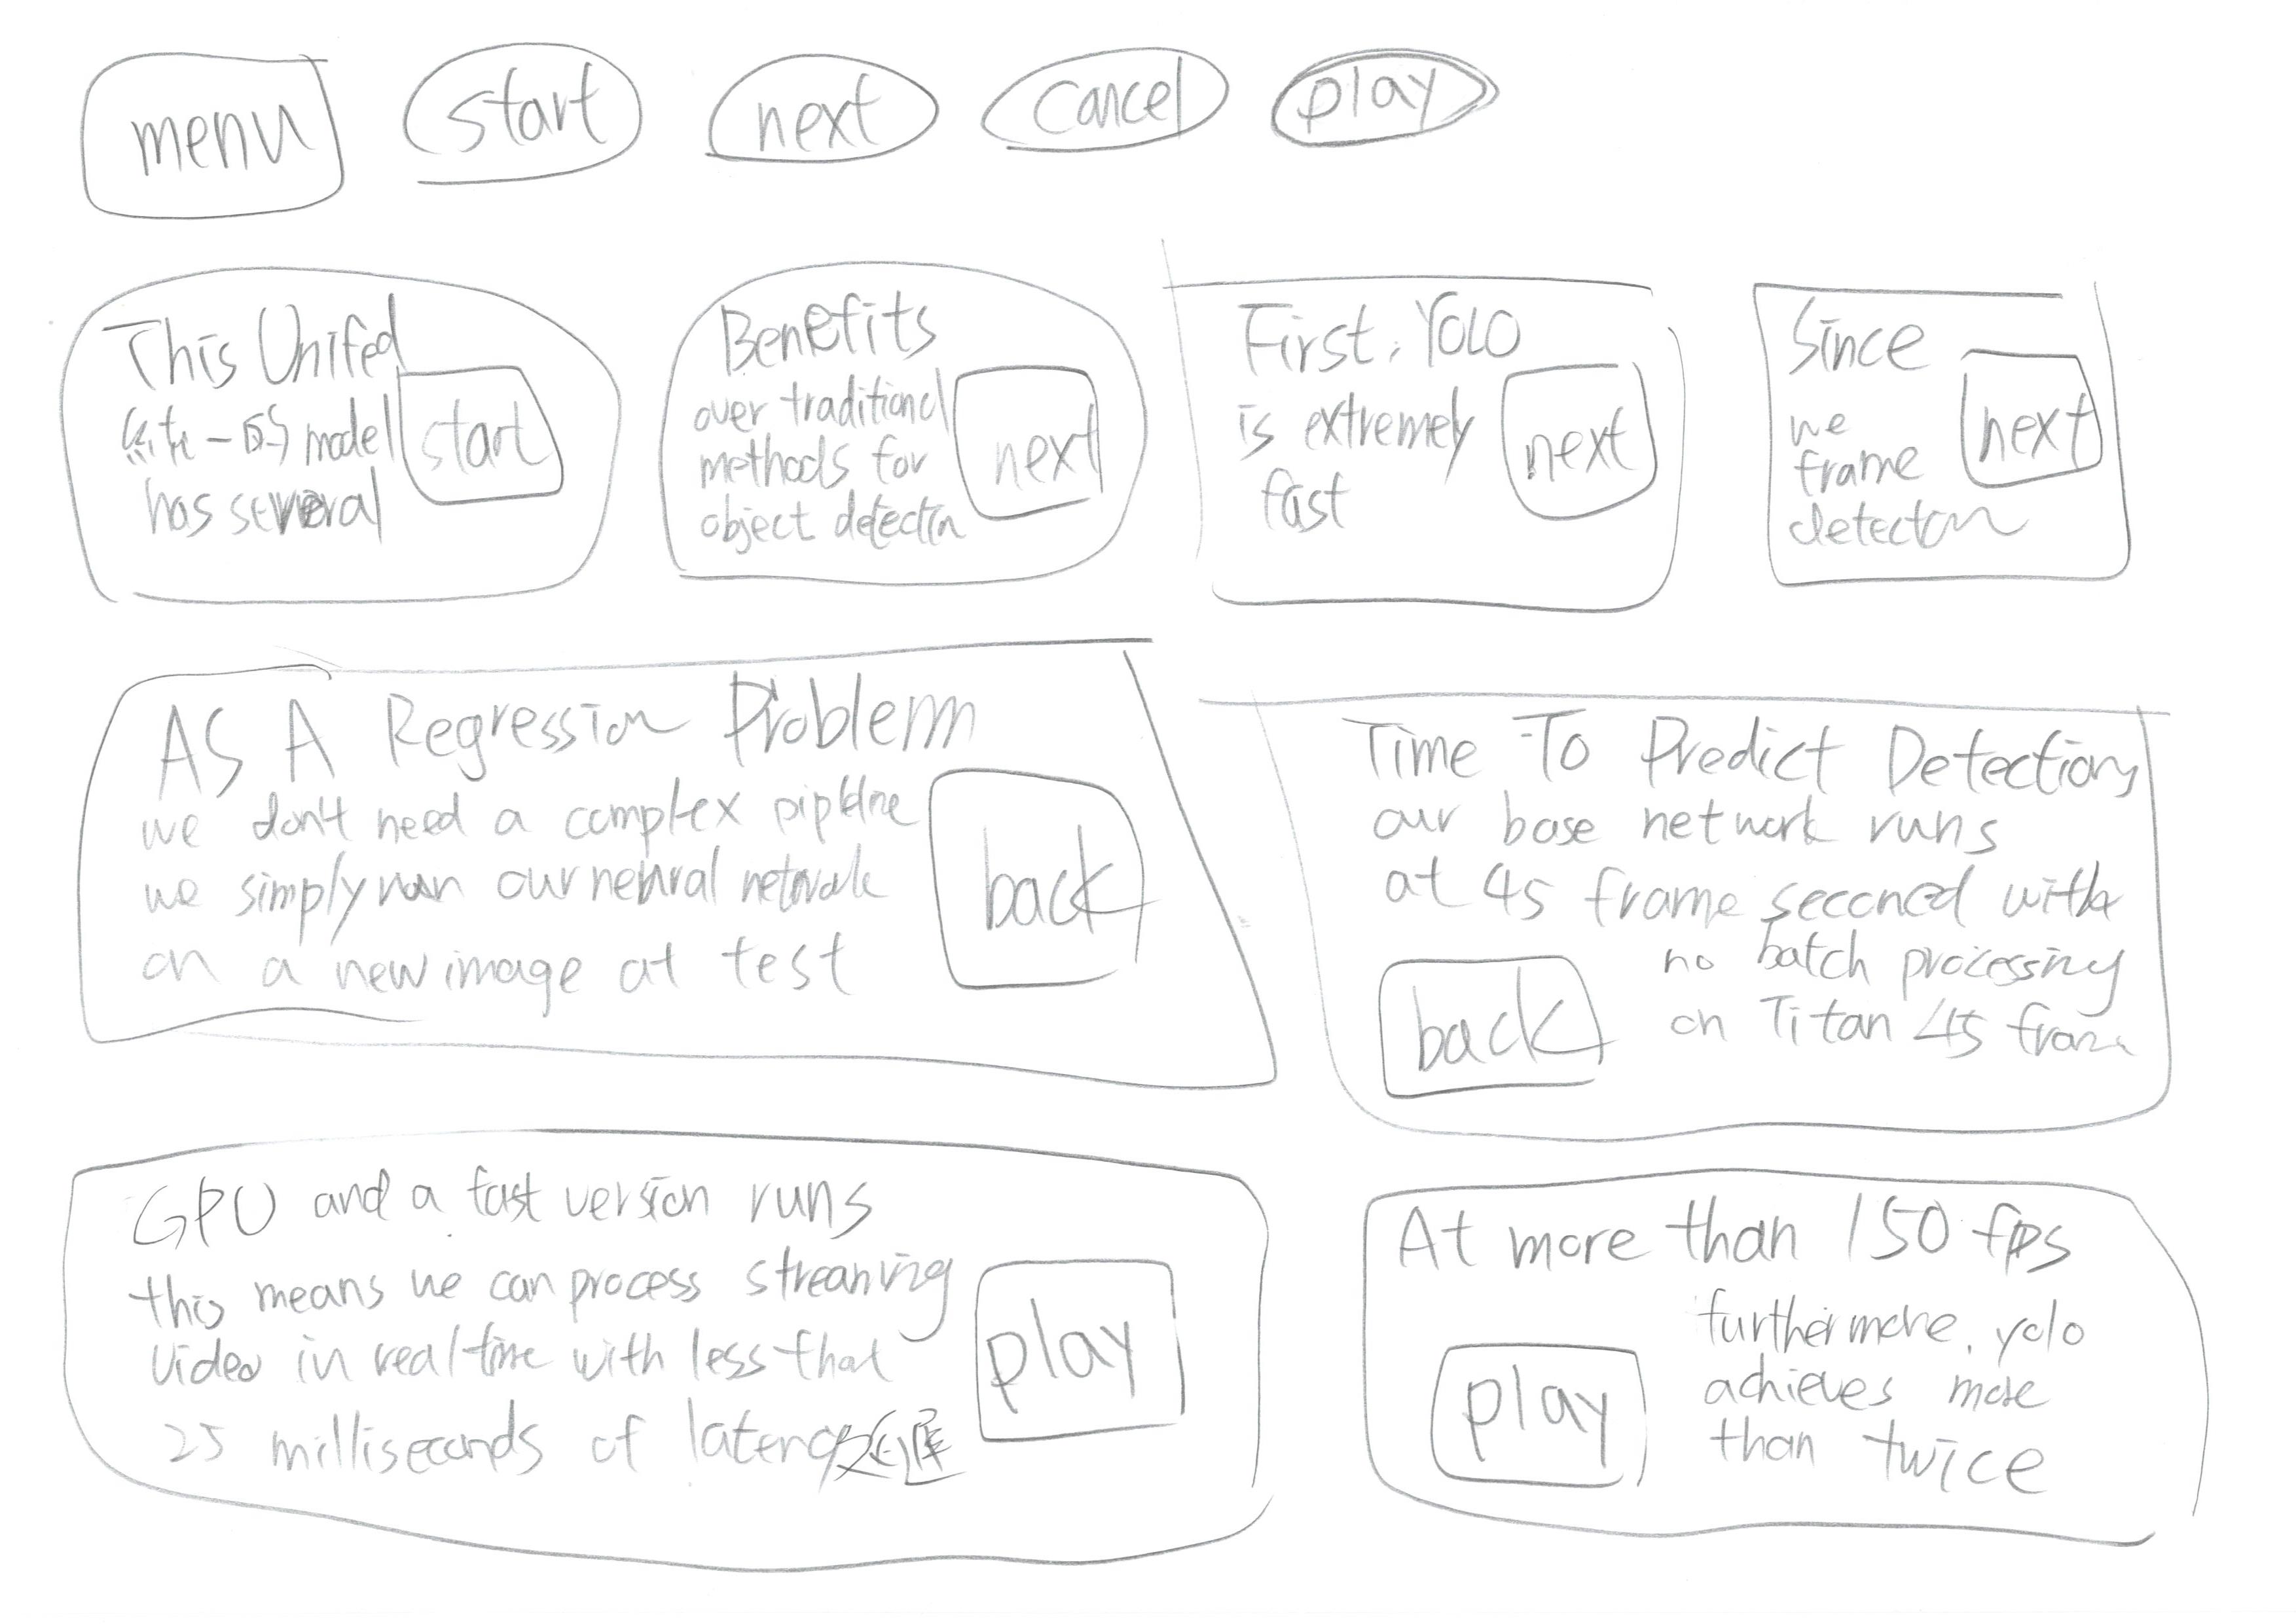 menu
start
next
cancel
play
This Unifed
model
has several
start
Benefits
over traditional
methods for
object detectin
next
First, YOLO
is extremely
fast
next
Since
we
frame
detecton
next
AS A Regression Problem
we don't need a complex pipline
we simply run our neural network
on a new image at test
back
Time To Predict Detection
our base network runs
at 45 frame second with
no batch processing
on Titan 45 frame
back
GPU and a fast version runs
this means we can process streaming
video in real time with less that
25 milliseconds of latency
play
At more than 150 fps
furthermore, yolo
achieves more
than twice
play